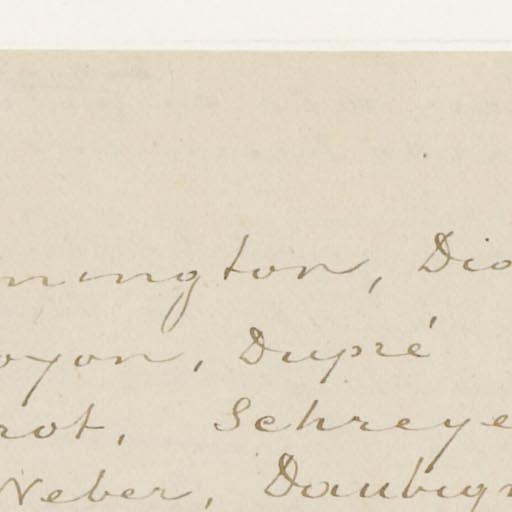 nnington, Dia
oyon, Dupré
rot, Schreye
Weber, Daubign